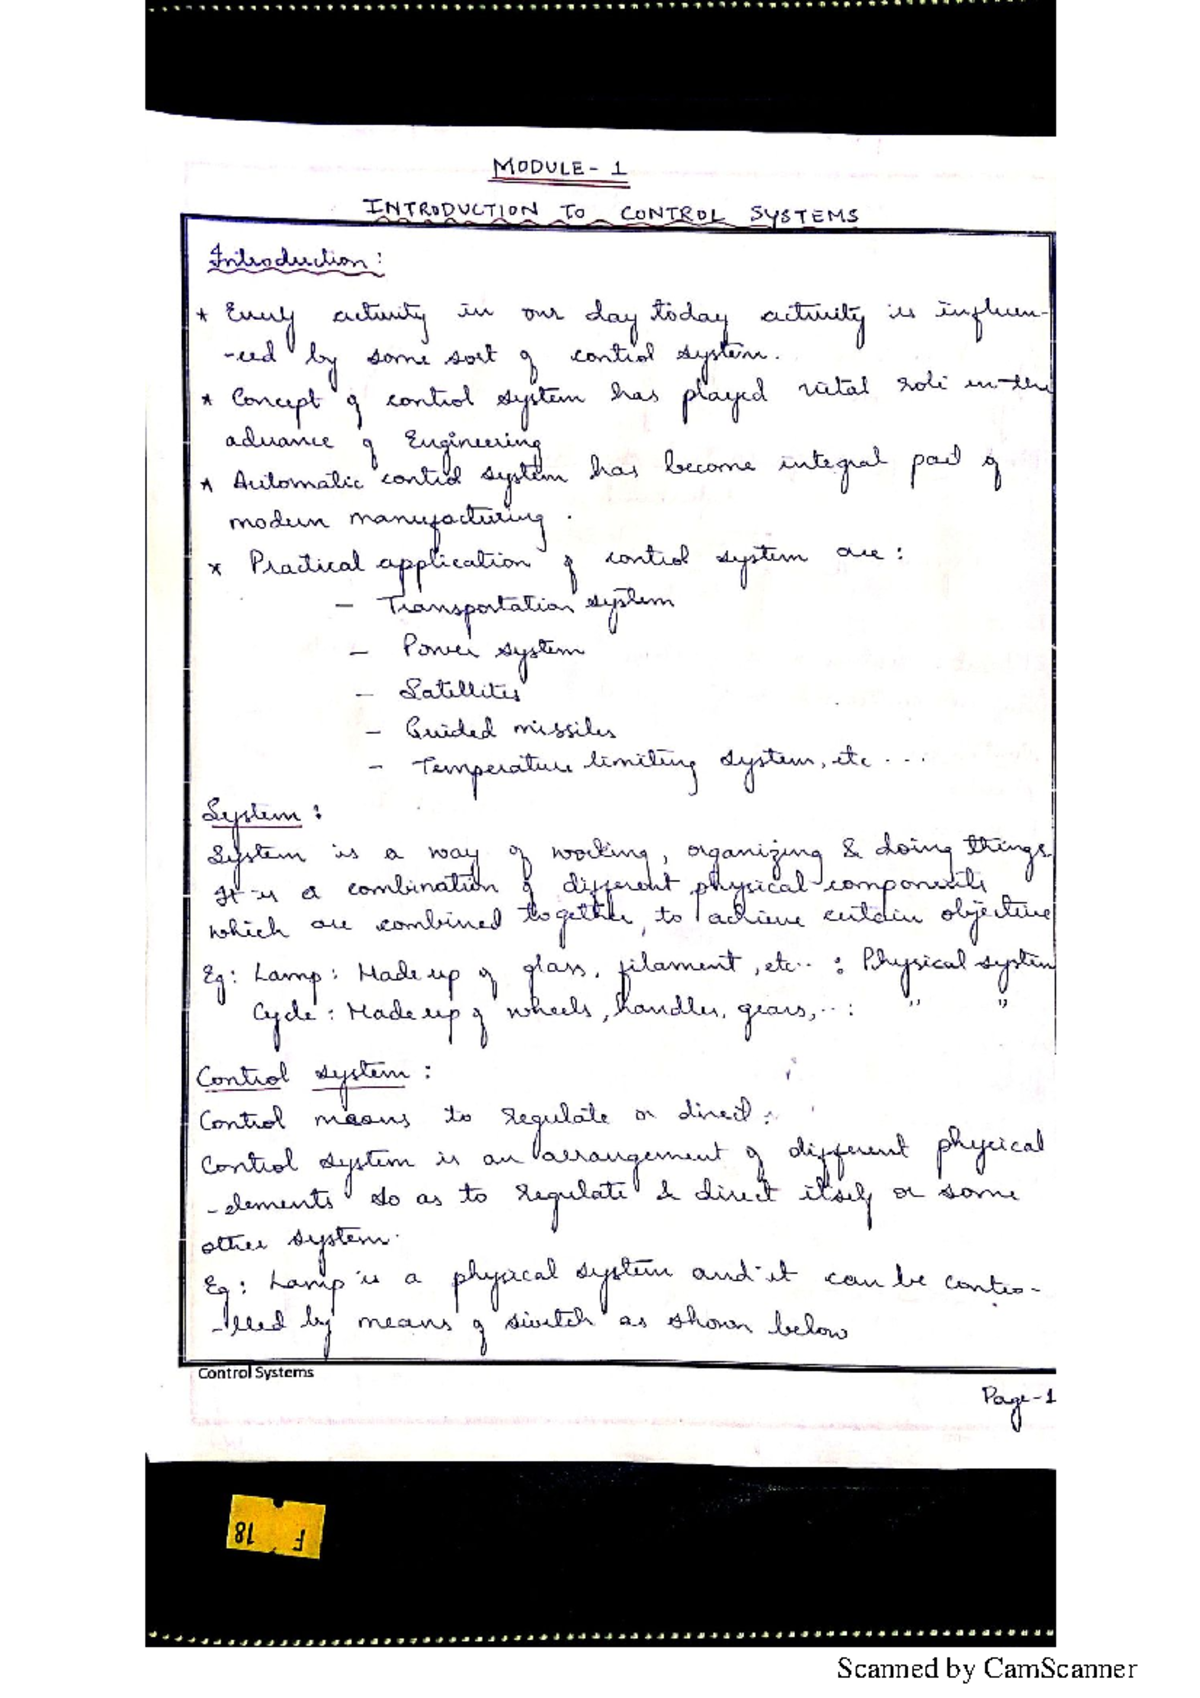 MODULE - 1
INTRODUCTION TO CONTROL SYSTEMS
Introduction :
* Every activity in our day today activity is influen-
-ced by some sort of control system.
* Concept of control system has played vital role in the
advance of Engineering
* Automatic control system has become integral part of
modern manufacturing.
* Practical application of control system are :
- Transportation system
- Power system
- Satellites
- Guided missiles
- Temperature limiting system, etc ....
System :
System is a way of working, organizing & doing things.
It is a combination of different physical components
which are combined together, to achieve certain objective
Eg: Lamp : Made up of glass, filament, etc.. : Physical system
Cycle : Made up of wheels, handles, gears, .. : " "
Control system :
Control means to regulate or direct.
Control system is an arrangement of different physical
-elements so as to regulate & direct itself or some
other system.
Eg : Lamp is a physical system and it can be contro-
-lled by means of switch as shown below
Control Systems
Page-1
F 18
Scanned by CamScanner